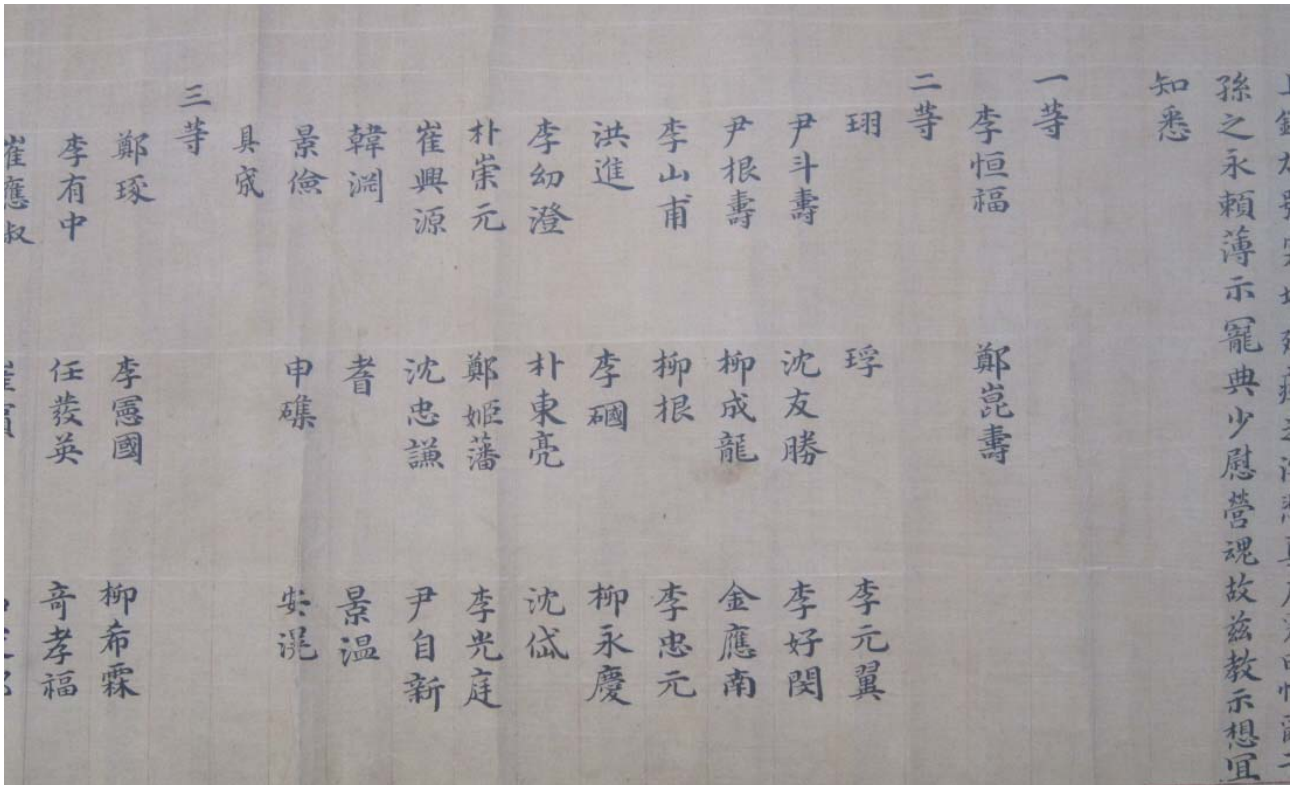 孫之永賴薄示寵典少慰營魂故茲教示想宜
知悉
一等
李恒福 鄭崑壽
二等
珝 琈 李元翼
尹斗壽 沈友勝 李好閔
尹根壽 柳成龍 金應南
李山甫 柳根 李忠元
洪進 李 柳永慶
李幼澄 朴東亮 沈岱
朴崇元 鄭姬藩 李光庭
崔興源 沈忠謙 尹自新
韓淵 耆 景溫
景儉 申磼 安滉
具宬
三等
鄭琢 李憲國 柳希霖
李有中 任發英 奇孝福
崔應叔 崔賓